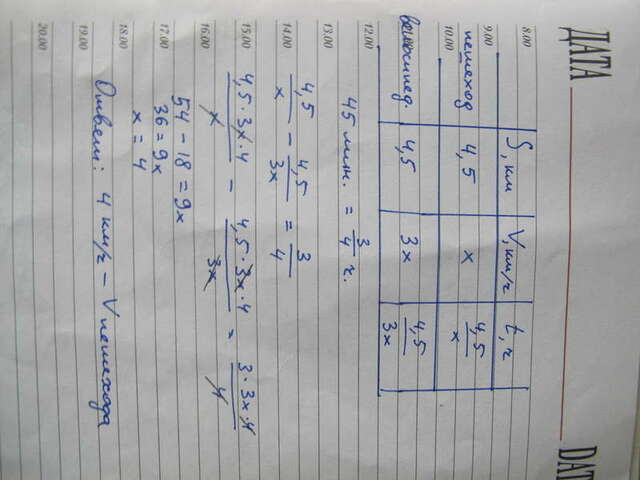 ДАТА DAT
8.00 S, км V, км/г t, г
9.00 пешеход 4,5 x 4,5/x
10.00
велосипед. 4,5 3x 4,5/3x
12.00
45 мин. = 3/4 г.
13.00
14.00 4,5/x - 4,5/3x = 3/4
15.00 4,5·3x·4/x - 4,5·3x·4/3x = 3·3x·4/4
16.00
54 - 18 = 9x
17.00 36 = 9x
x = 4
18.00
Ответ: 4 км/г - V пешехода
19.00
20.00